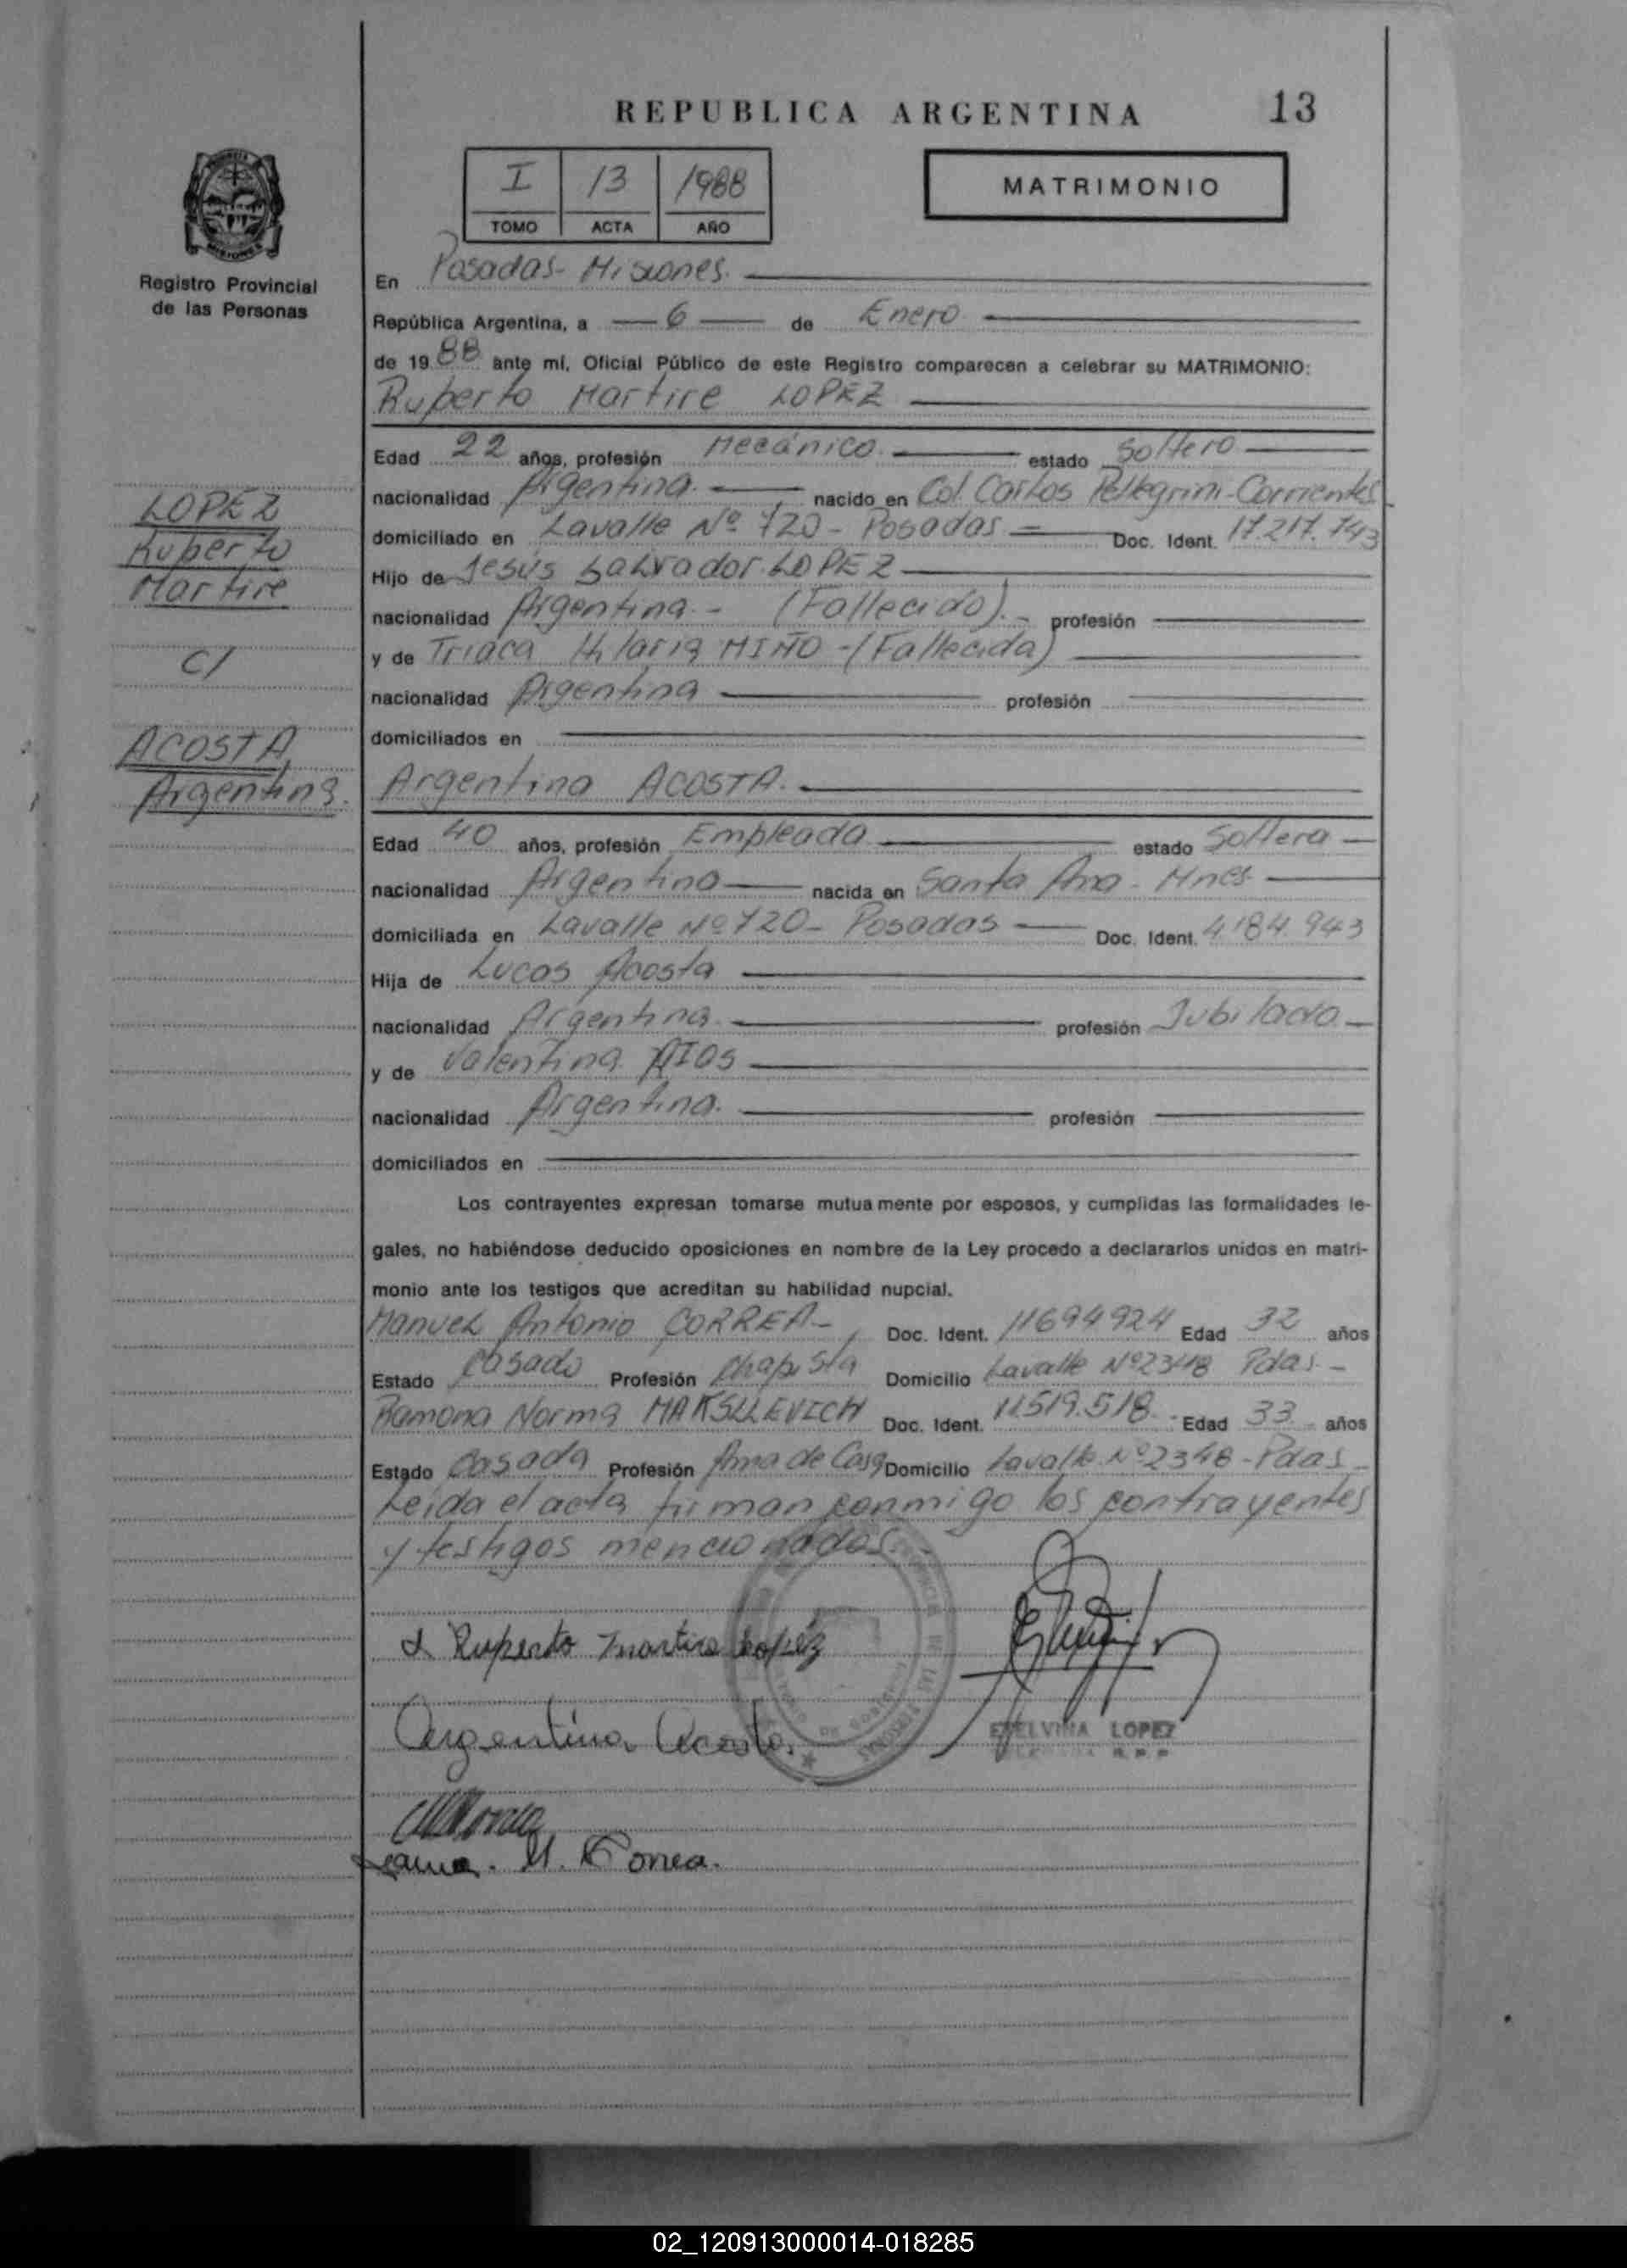 REPUBLICA ARGENTINA
13
I 13 1988
TOMO ACTA AÑO
MATRIMONIO
Registro Provincial
de las Personas
En Posadas - Misiones.
República Argentina, a 6 de Enero
de 1988 ante mí, Oficial Público de este Registro comparecen a celebrar su MATRIMONIO:
Ruperto Martire LOPEZ
Edad 22 años, profesión Mecánico estado Soltero
nacionalidad Argentina. nacido en Col. Carlos Pellegrini - Corrientes
domiciliado en Lavalle Nº 720 - Posadas Doc. Ident. 17.217.743
Hijo de Jesús Salvador LOPEZ
nacionalidad Argentina - (Fallecido). - profesión
y de Triaca Hilaria MIÑO - (Fallecida)
nacionalidad Argentina profesión
domiciliados en
LOPEZ
Ruperto
Martire
c/
ACOSTA,
Argentina.
Argentina ACOSTA.
Edad 40 años, profesión Empleada estado Soltera
nacionalidad Argentina nacida en Santa Ana - Mnes
domiciliada en Lavalle Nº 720 - Posadas Doc. Ident. 4.184.943
Hija de Lucas Acosta
nacionalidad Argentina. profesión Jubilado
y de Valentina
nacionalidad Argentina. profesión
domiciliados en
Los contrayentes expresan tomarse mutuamente por esposos, y cumplidas las formalidades le-
gales, no habiéndose deducido oposiciones en nombre de la Ley procedo a declararlos unidos en matri-
monio ante los testigos que acreditan su habilidad nupcial.
Manuel Antonio CORREA - Doc. Ident. 11694924 Edad 32 años
Estado Casado Profesión Chapista Domicilio Lavalle Nº 2348 Pdas. -
Ramona Norma Doc. Ident. 11.519.518. Edad 33 años
Estado Casada Profesión Ama de Casa Domicilio Lavalle Nº 2348 - Pdas -
Leída el acta firman conmigo los contrayentes
y testigos mencionados. -
Ruperto Martire Lopez
Argentina Acosta.
ETELVINA LOPEZ
R.P.P.
M. Correa.
02_120913000014-018285